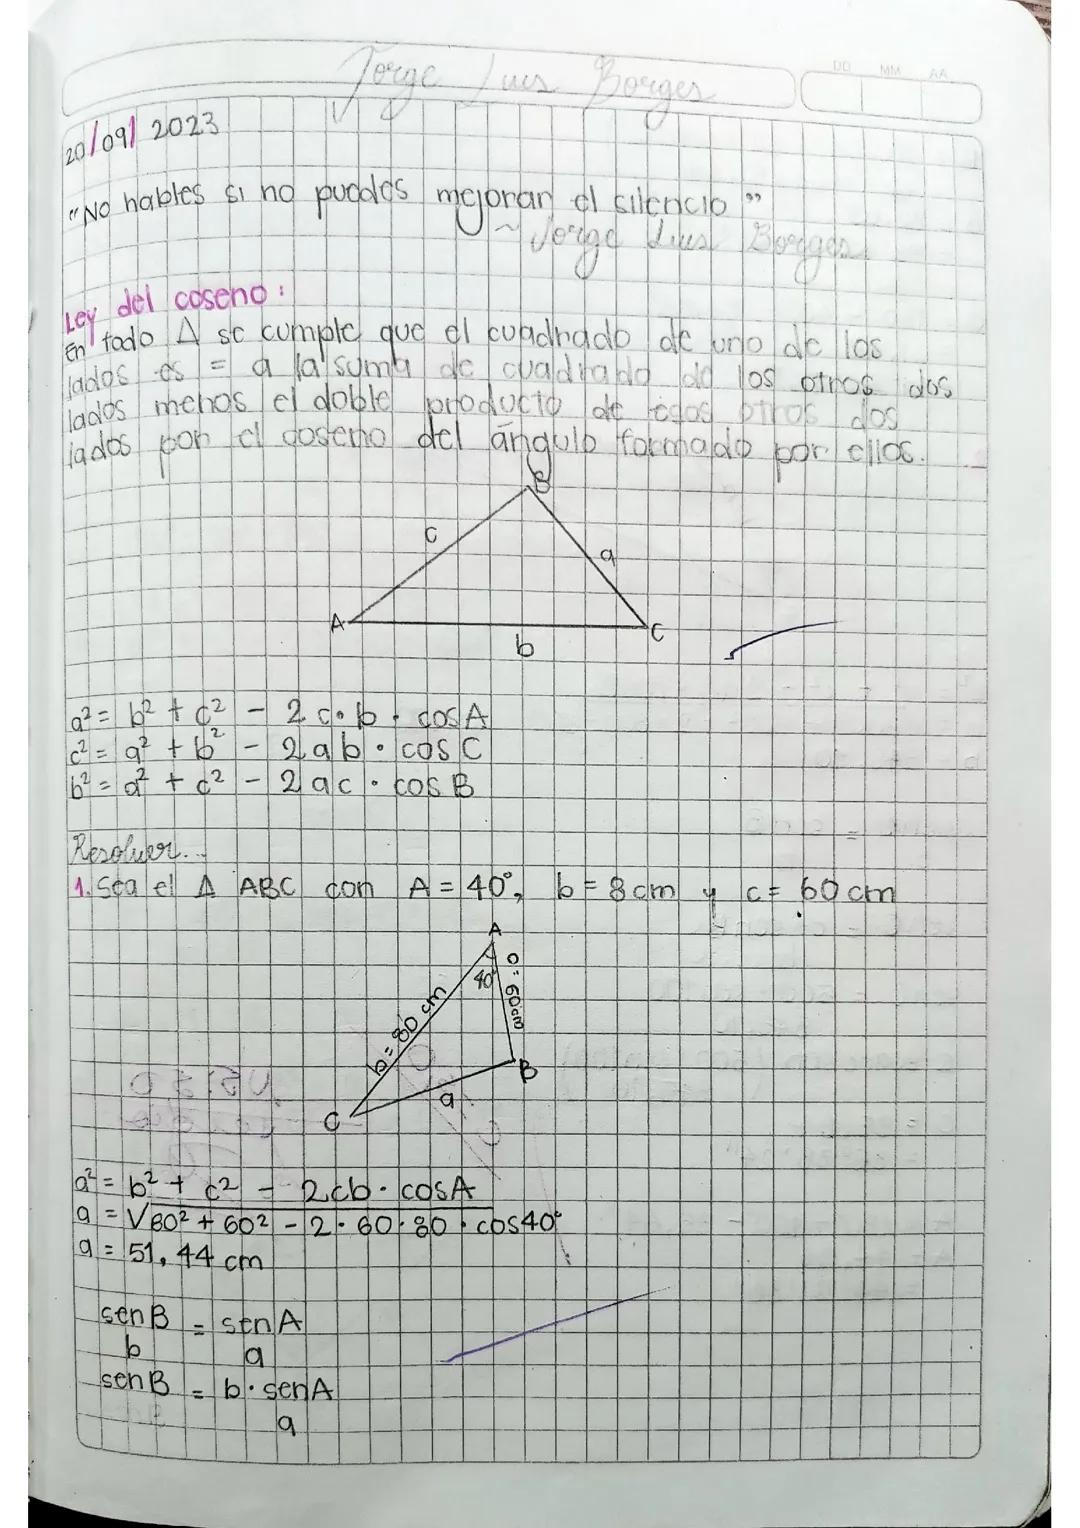 Jorge Luis Borges
DD MM AA
20/09/2023
"No hables si no puedes mejorar el silencio"
~ Jorge Luis Borges.
Ley del coseno:
En todo Δ se cumple que el cuadrado de uno de los
lados es = a la suma de cuadrado de los otros dos
lados menos el doble producto de esos otros dos
lados por el coseno del ángulo formado por ellos.
B
c
a
A
C
b
a² = b² + c² - 2c·b · cosA
c² = a² + b² - 2ab · cos C
b² = a² + c² - 2ac · cos B
Resolver...
1. Sea el Δ ABC con A = 40°, b = 8cm y c = 60 cm
A
40°
b = 80 cm
c = 60cm
B
a
C
a² = b² + c² - 2cb · cosA
a = √80² + 60² - 2 · 60 · 80 · cos40°
a = 51,44 cm
senB = senA
b a
senB = b · senA
a